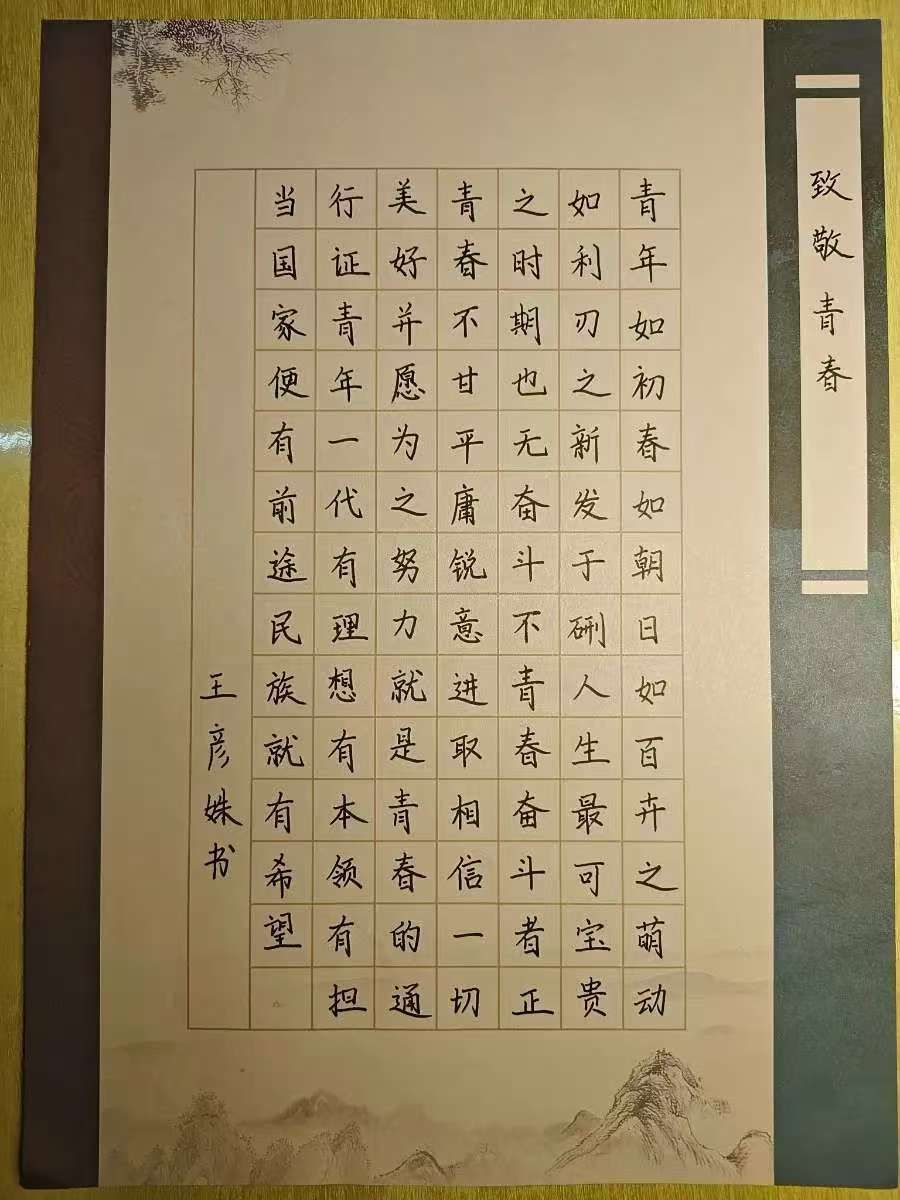 致敬青春
青年如初春如朝日如百卉之萌动
如利刃之新发于硎人生最可宝贵
之时期也无奋斗不青春奋斗者正
青春不甘平庸锐意进取相信一切
美好并愿为之努力就是青春的通
行证青年一代有理想有本领有担
当国家便有前途民族就有希望
王彦姝书